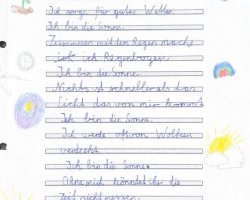 Ich sorge für gutes Wetter.
Ich bin die Sonne.
Zusammen mit dem Regen mache
ich ich Regenbogen.
Ich bin die Sonne.
Nichts ist schneller als das
Licht das von mir kommt.
Ich bin die Sonne.
Ich werde oft von Wolken
verdeckt.
Ich bin die Sonne.
Ohne mich könntet ihr die
Zeit nicht messen.